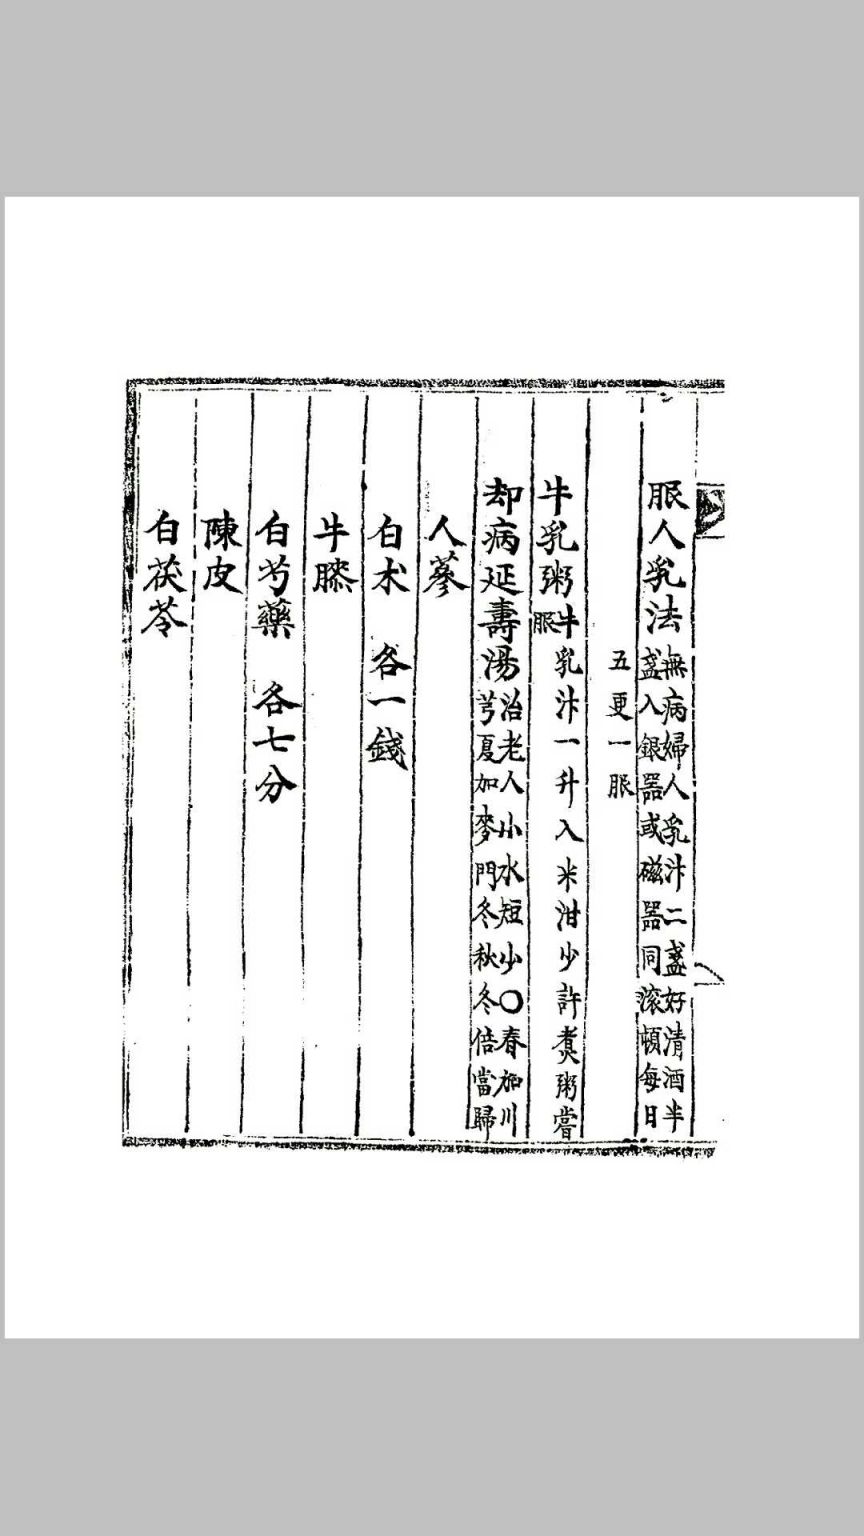 服人乳法 無病婦人乳汁二盞好清酒半
盞入銀器或磁器同滚頓每日
五更一服
牛乳粥 牛乳汁一升入米泔少許煮粥嘗
服
却病延壽湯 治老人小水短少○春加川
芎夏加麥門冬秋冬倍當歸
人蔘
白术 各一錢
牛膝
白芍藥 各七分
陳皮
白茯苓